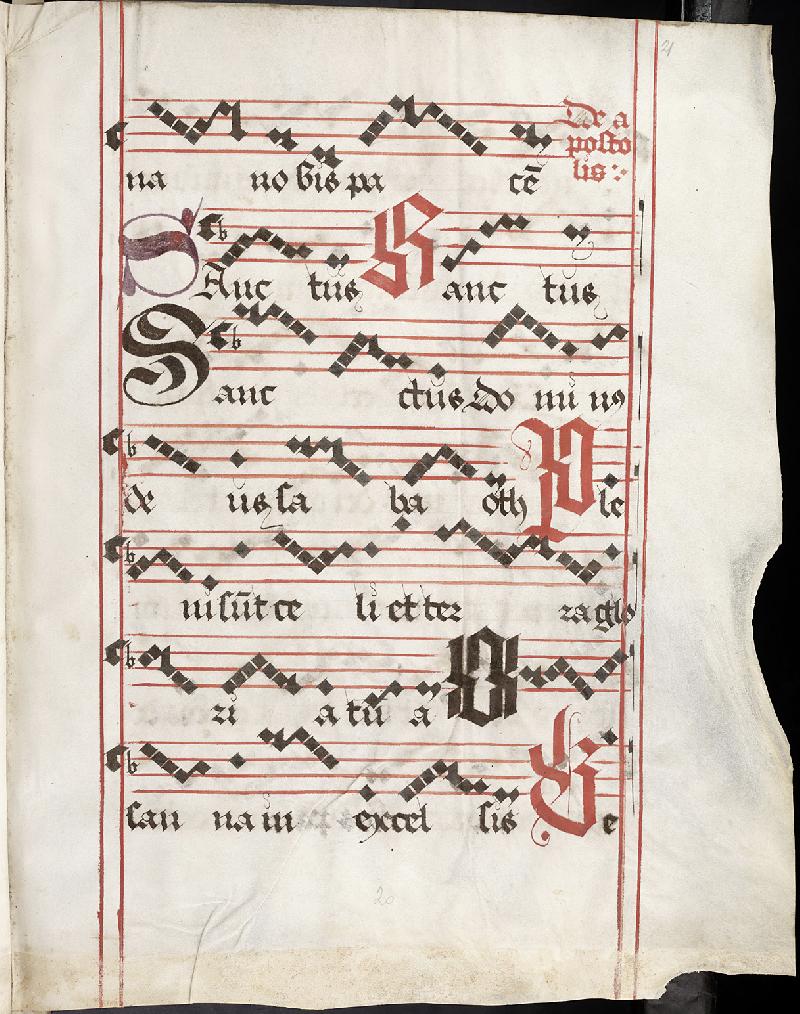 21
na no bis pa cē De a
posto
lis
SAnc tus Sanc tus
Sanc ctus do mi nꝰ
de us sa ba oth Ple
ni sūt ce li et ter ra glo
ri a tu a O
san na in excel sis Be
20